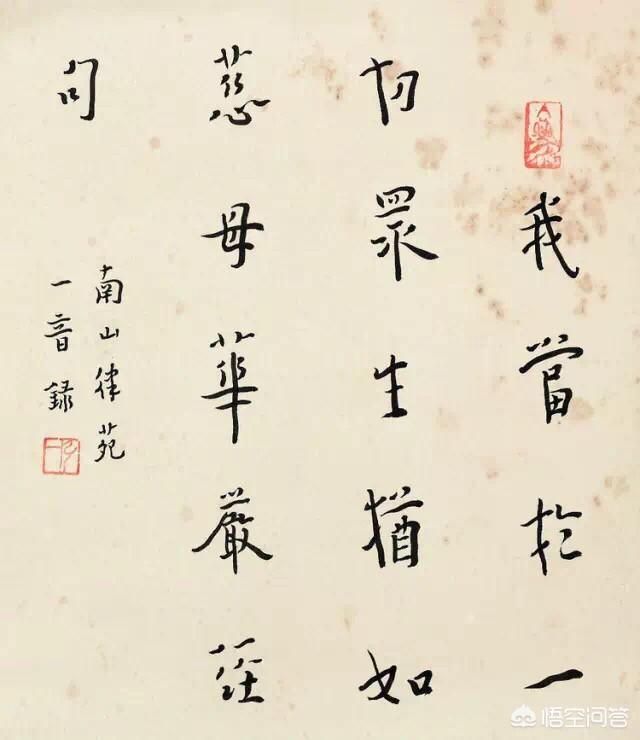 我當於一
切眾生猶如
慈母華嚴經
句
南山律苑
一音錄
弘一
悟空问答